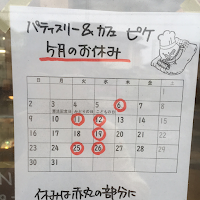 パティスリー&カフェ ピケ
5月のお休み
日 月 火 水 木 金 土
1
2 3 4 5 6 7 8
9 10 11 12 13 14 15
16 17 18 19 20 21 22
23 24 25 26 27 28 29
30 31
休みは赤丸の部分に